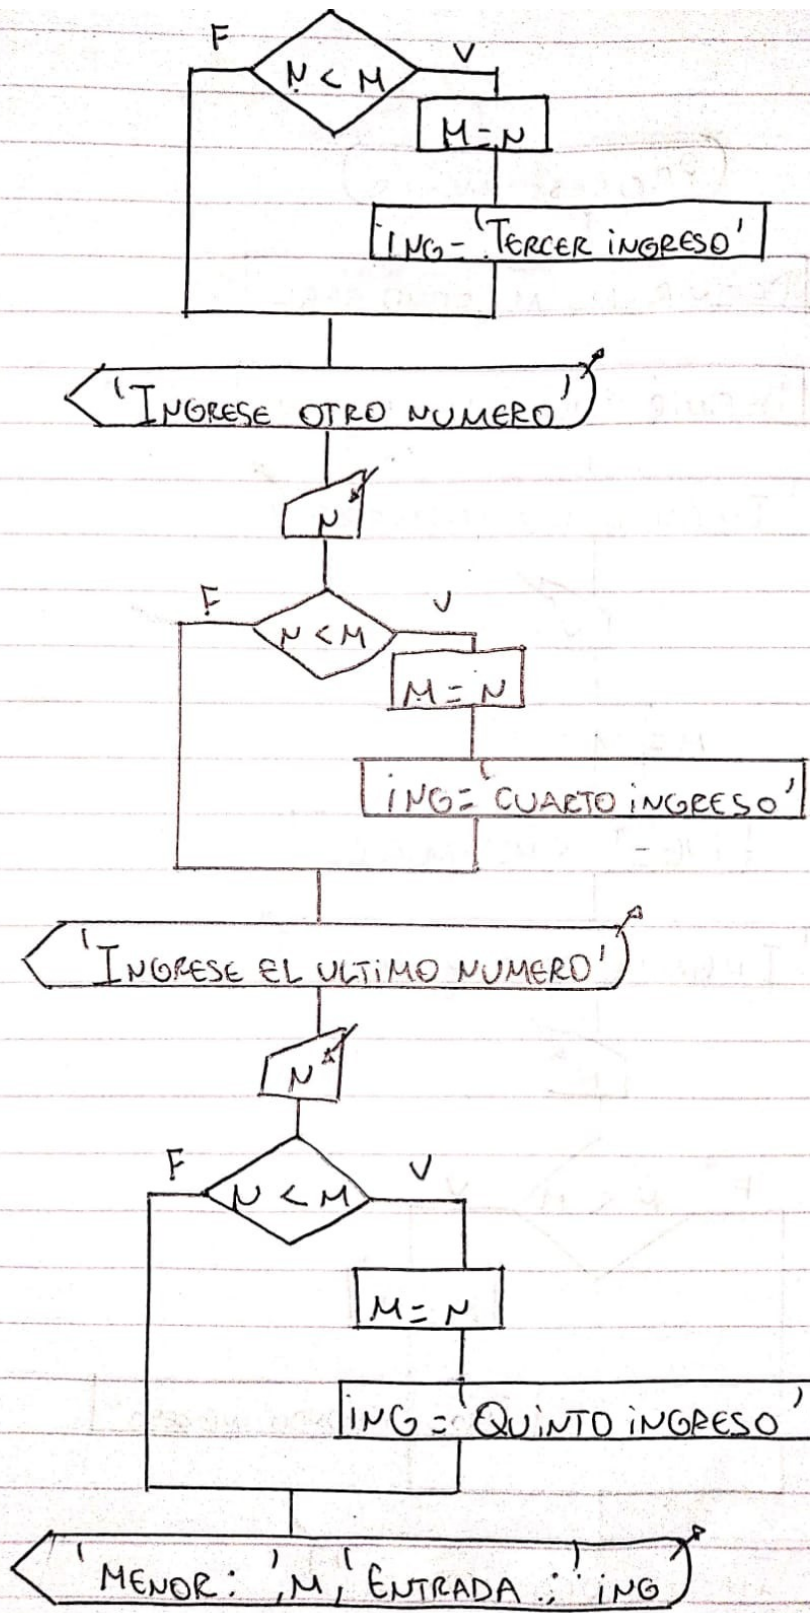 F
V
N < M
M = N
ING = 'TERCER INGRESO'
'INGRESE OTRO NUMERO'
N
F
V
N < M
M = N
ING = 'CUARTO INGRESO'
'INGRESE EL ULTIMO NUMERO'
N
F
V
N < M
M = N
ING = 'QUINTO INGRESO'
'MENOR: ', M, 'ENTRADA : ' ING